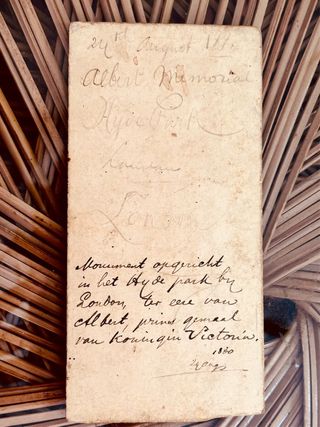 24 August
Albert Memorial
Hyde Park
London
Monument opgericht
in het Hyde park bij
London, ter eere van
Albert, prins gemaal
van Koningin Victoria.
1880
24 Aug